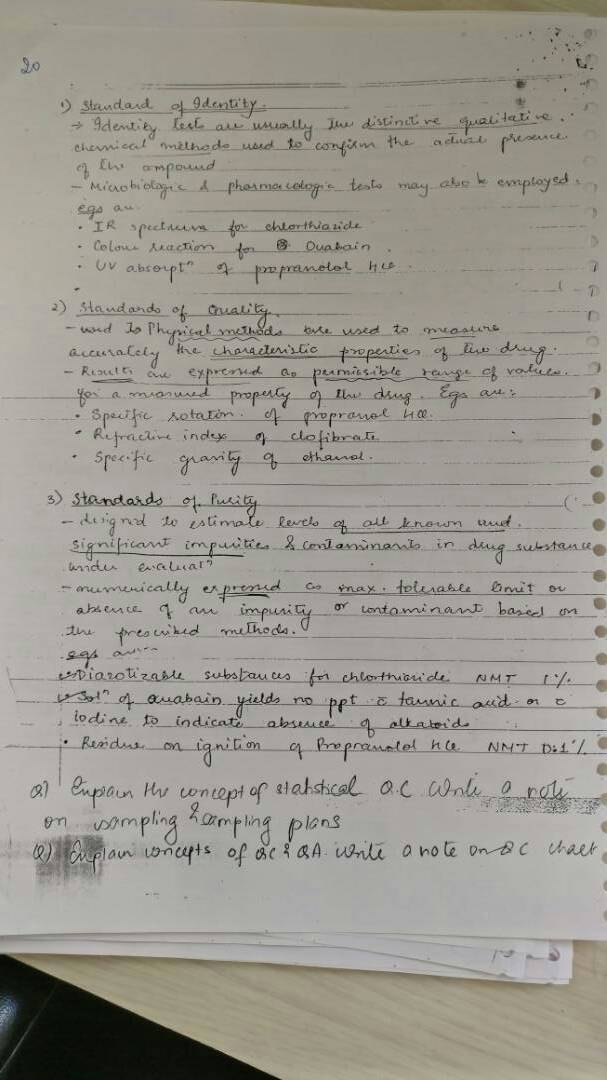 20
1) Standard of Identity.
→ Identity tests are usually the distinctive qualitative
chemical methods used to confirm the actual presence
of the compound
- Microbiologic & pharmacologic tests may also be employed.
egs are.
• IR spectrum for chlorthiazide
• Colour reaction for Ouabain.
• UV absorptⁿ of propranolol HCl.
•
2) Standards of Quality.
- used to Physical methods are used to measure
accurately the characteristic properties of the drug.
- Results are expressed as permissible range of values.
for a measured property of the drug. Egs are:
• Specific rotation. of propranol HCl.
• Refractive index of clofibrate
• Specific gravity of ethanol.
3) Standards of Purity
- designed to estimate levels of all known and.
significant impurities & contaminants in drug substance
under evaluatⁿ
- numerically expressed as max. tolerable limit or
absence of an impurity or contaminant based on
the prescribed methods.
egs are
Diazotizable substances for chlorthiazide NMT 1%
Solⁿ of ouabain yields no ppt c̄ tannic acid or c̄
Iodine to indicate absence of alkaloids
• Residue on ignition of Propranolol HCl NMT 0.1%
Q) Explain the concept of statistical Q.C Write a note
on sampling & sampling plans
Q) Explain concepts of QC & QA. Write a note on QC chart